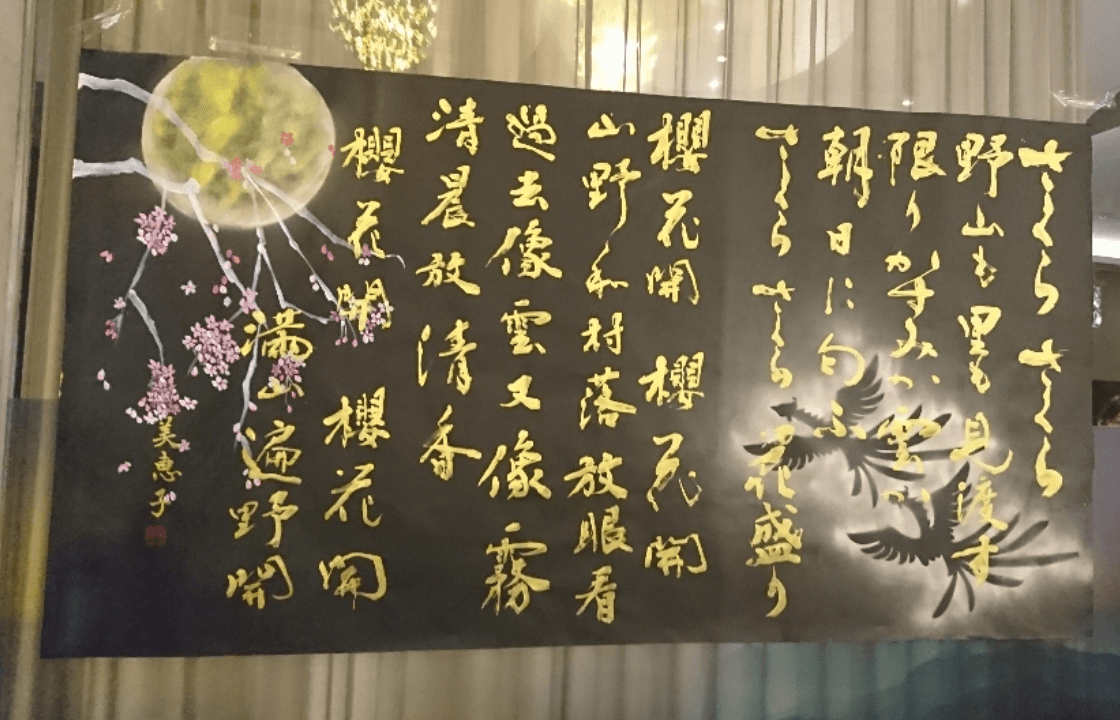 さくら さくら
野山も里も見渡す
限りかすみか雲か
朝日に匂ふ
さくら さくら 花盛り
櫻花開 櫻花開
山野和村落放眼看
過去像雲又像霧
清晨放清香
櫻花開 櫻花開
滿山遍野開
美惠子